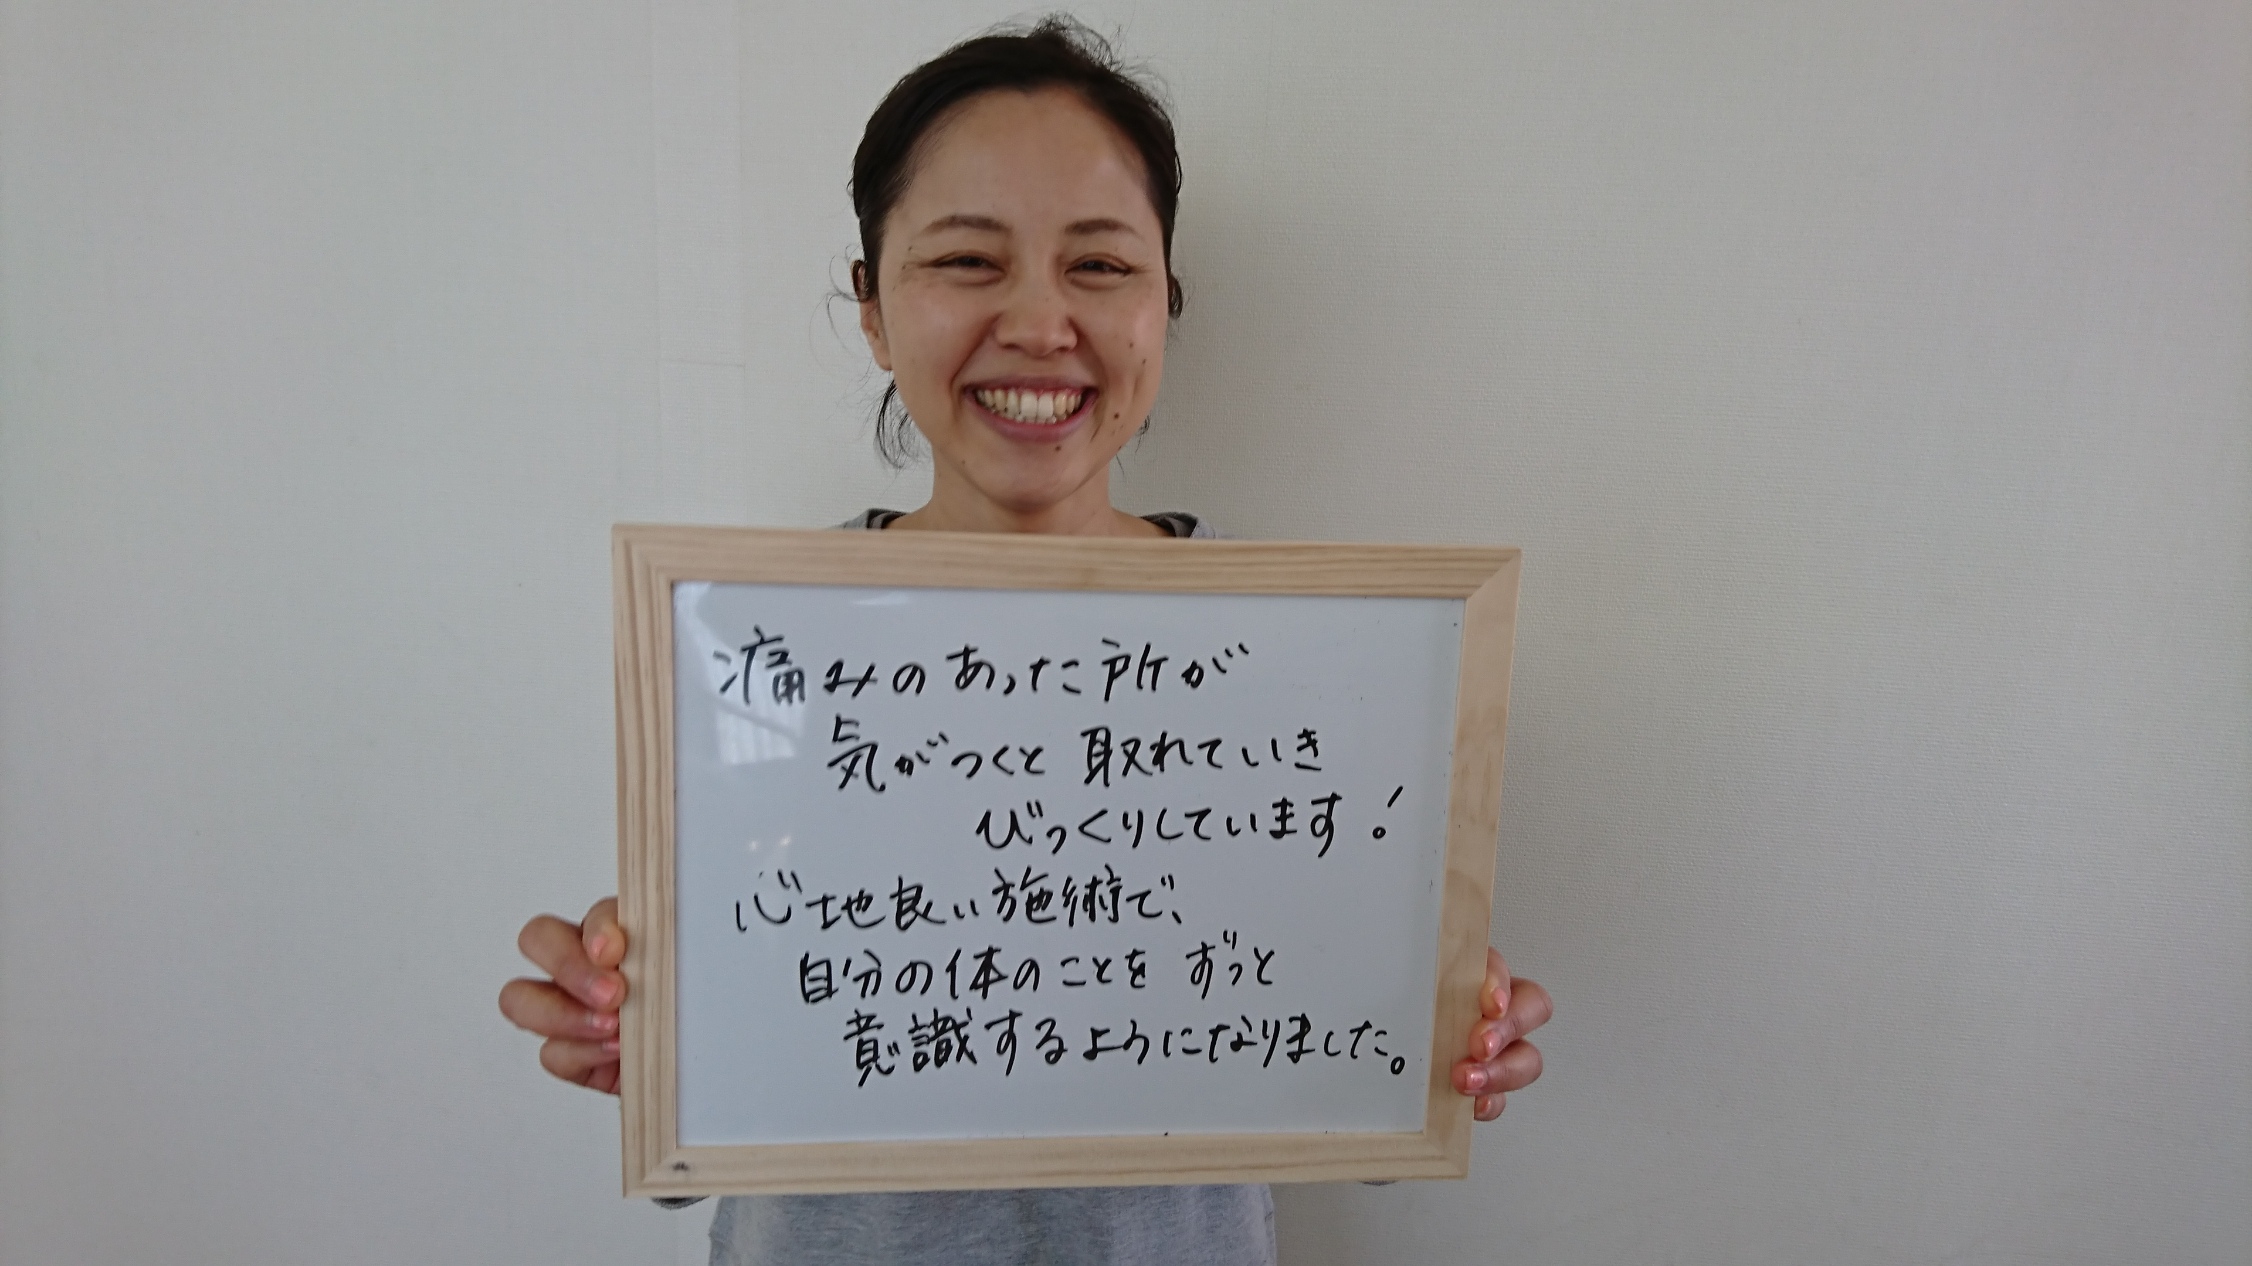 痛みのあった所が
気がつくと取れていき
びっくりしています!
心地良い施術で、
自分の体のことをずっと
意識するようになりました。